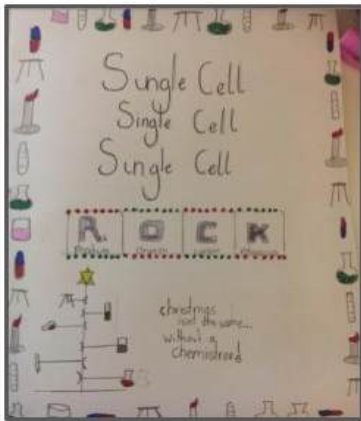 Single Cell
Single Cell
Single Cell
R O C K
christmas
isnt the same...
without a
chemistree!